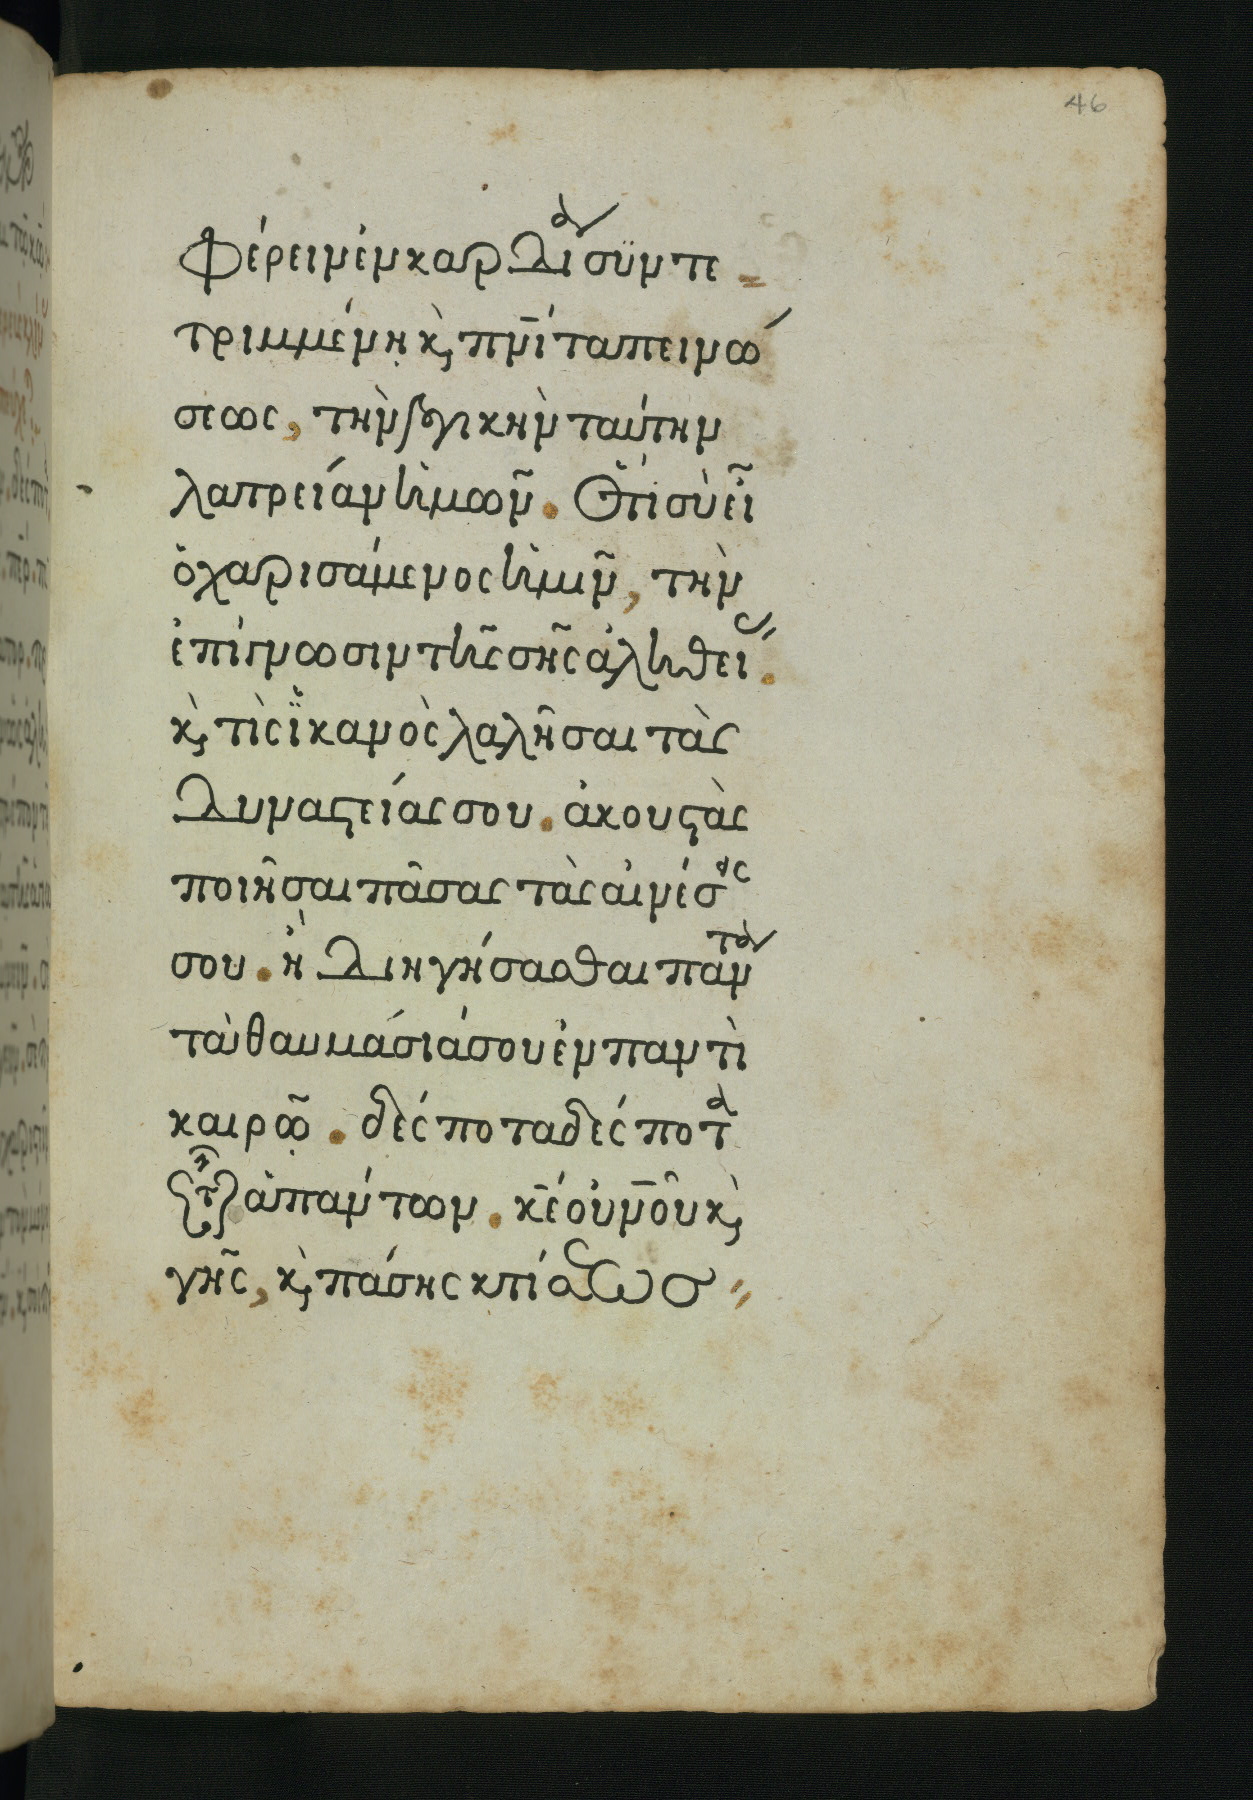 46
φέρειν ἐν καρδίᾳ συντε=
τριμμένη κ, πνῑ ταπεινώ
σεως, τὴν λογικὴν ταύτην
λατρείαν ἡμῶν. Ὅτι σὺ εἶ
ὁ χαρισάμενος ἡμῖν, τὴν
ἐπίγνωσιν τῆς σῆς ἀληθεί.
κ, τίς ἱκανὸς λαλῆσαι τὰς
δυναστείας σου. ἀκουστὰς
ποιῆσαι πάσας τὰς αἰνέσεις
σου. ἢ διηγήσασθαι πάντα
τὰ θαυμάσιά σου ἐν παντὶ
καιρῷ. δέσποτα δέσποτα
τῶν ἁπάντων. κε̄ οὐνοῦ κ,
γῆς, κ, πάσης κτίσεως